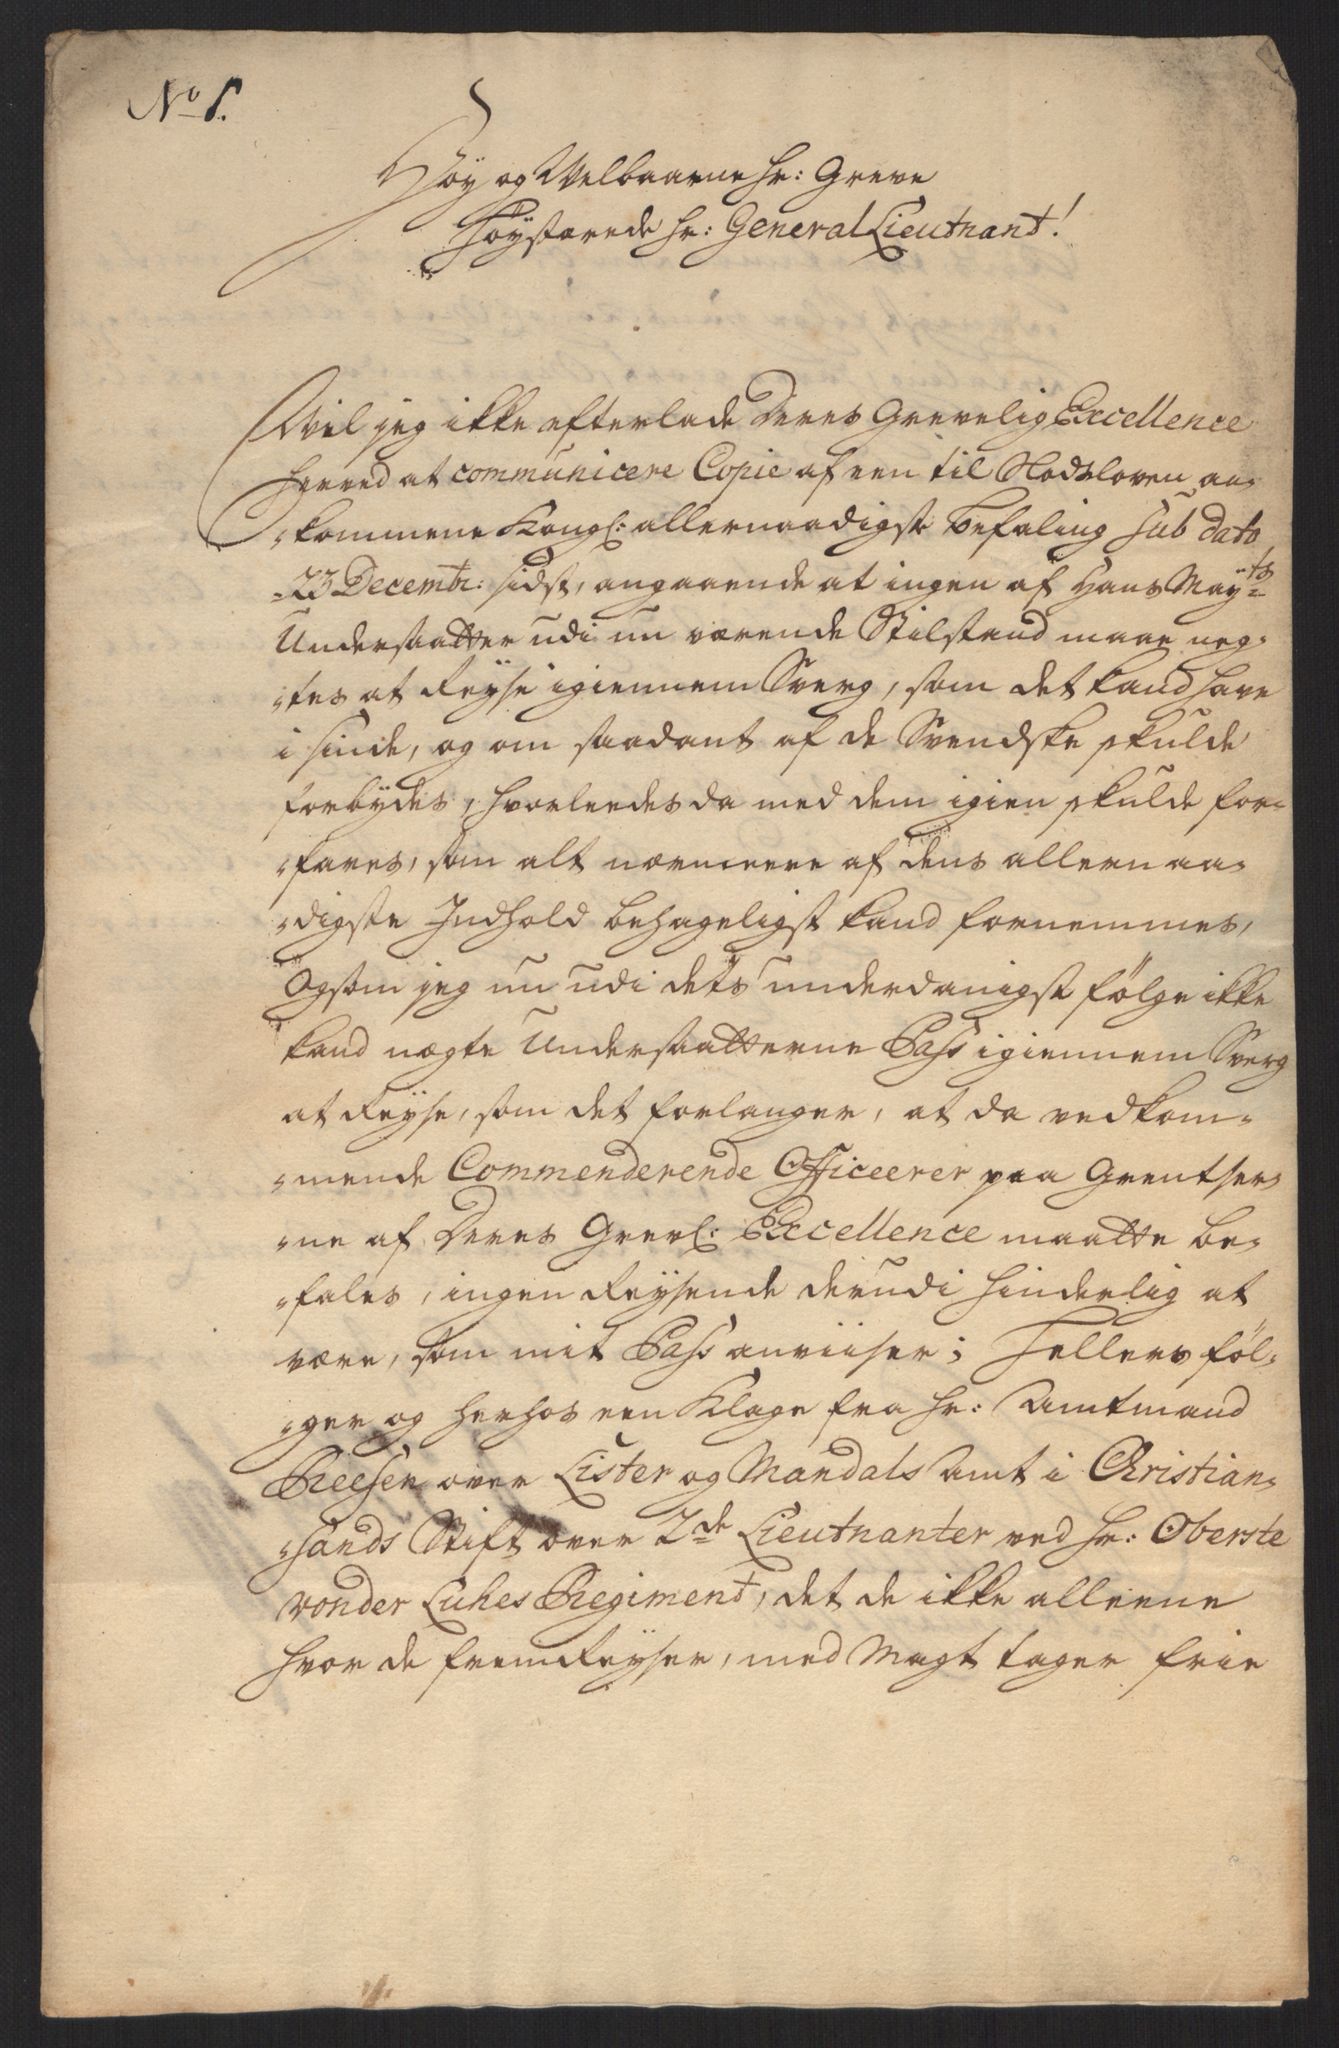 No 1.
Høy og Welbaarne Hr: Greve
Høystærede Hr: General Lieutnant!
Vil jeg ikke efterlade Deres Grevelig Excellence
herved at communicere Copie af een til Slodsloven an-
-kommene Kongl: allernaadigste befaling sub dato
23 Decembr: sidst, angaaende at ingen af Hans Mayts
Undersaatter udi nu værende Stilstand maae neg-
-tes at Reyse igiennem Sverg, som det kand have
i sinde, og om saadant af de Svendske skulde
forbydes, hvorleedes da med dem igien skulde for-
-fares, som alt nærmeere af dens allernaa-
-digste Indhold behageligst kand fornemmes,
Og som jeg nu udi dets underdanigst følge ikke
kand nægte Undersaatterne Pass igiennem Sverg
at Reyse, som det forlanger, at da vedkom-
-mende Commenderende Officeerer paa Grentser-
-ne af Deres Grevl: Excellence maatte be-
-fales, ingen Reysende derudi hinderlig at
være, som mit Pass anviiser; Tellers føl-
-ger og herhos een Klage fra Hr: Amtmand
Reesen over Lister og Mandals Amt i Christian-
-sands Stift over 2de Lieutnanter ved Hr: Oberste
vonder Luhes Regiment, det de ikke alleene
hvor de fremReyser, med Magt tager frie